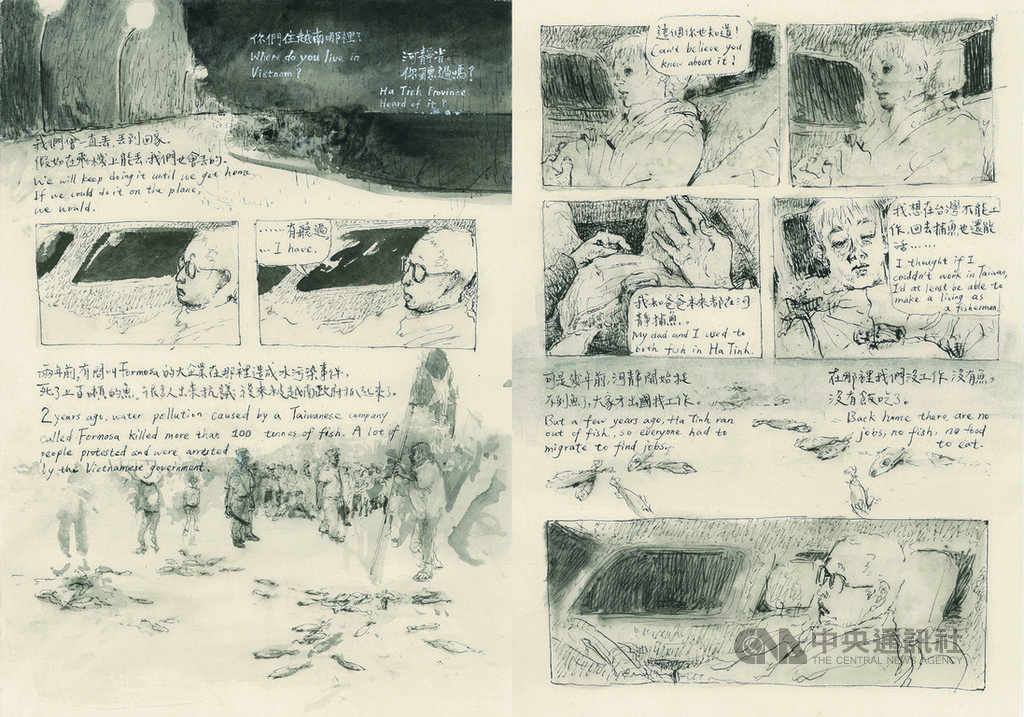 你們住越南哪裡?
Where do you live in
Vietnam?
河靜省。
你聽過嗎?
Ha Tinh Province.
Heard of it?
我們會一直丟,丟到回家。
假如在飛機上能丟,我們也會丟的。
We will keep doing it until we get home.
If we could do it on the plane,
we would.
……有聽過
… I have.
兩年前,有間叫Formosa的大企業在那裡造成水污染事件,
死了上百噸的魚。很多人出來抗議,後來被越南政府抓起來了。
2 years ago, water pollution caused by a Taiwanese company
called Formosa killed more than 100 tonnes of fish. A lot of
people protested and were arrested
by the Vietnamese government.
這個你也知道!
Can't believe you
know about it!
我和爸爸本來都在河
靜捕魚。
My dad and I used to
both fish in Ha Tinh.
我想在台灣不能工
作,回去捕魚也還能
活……
I thought if I
couldn't work in Taiwan,
I'd at least be able to
make a living as
a fisherman.
可是幾年前,河靜開始抓
不到魚了,大家才出國找工作。
But a few years ago, Ha Tinh ran
out of fish, so everyone had to
migrate to find jobs.
在那裡我們沒工作,沒有魚,
沒有飯吃了。
Back home there are no
jobs, no fish, no food
to eat.
中央通訊社
THE CENTRAL NEWS AGENCY